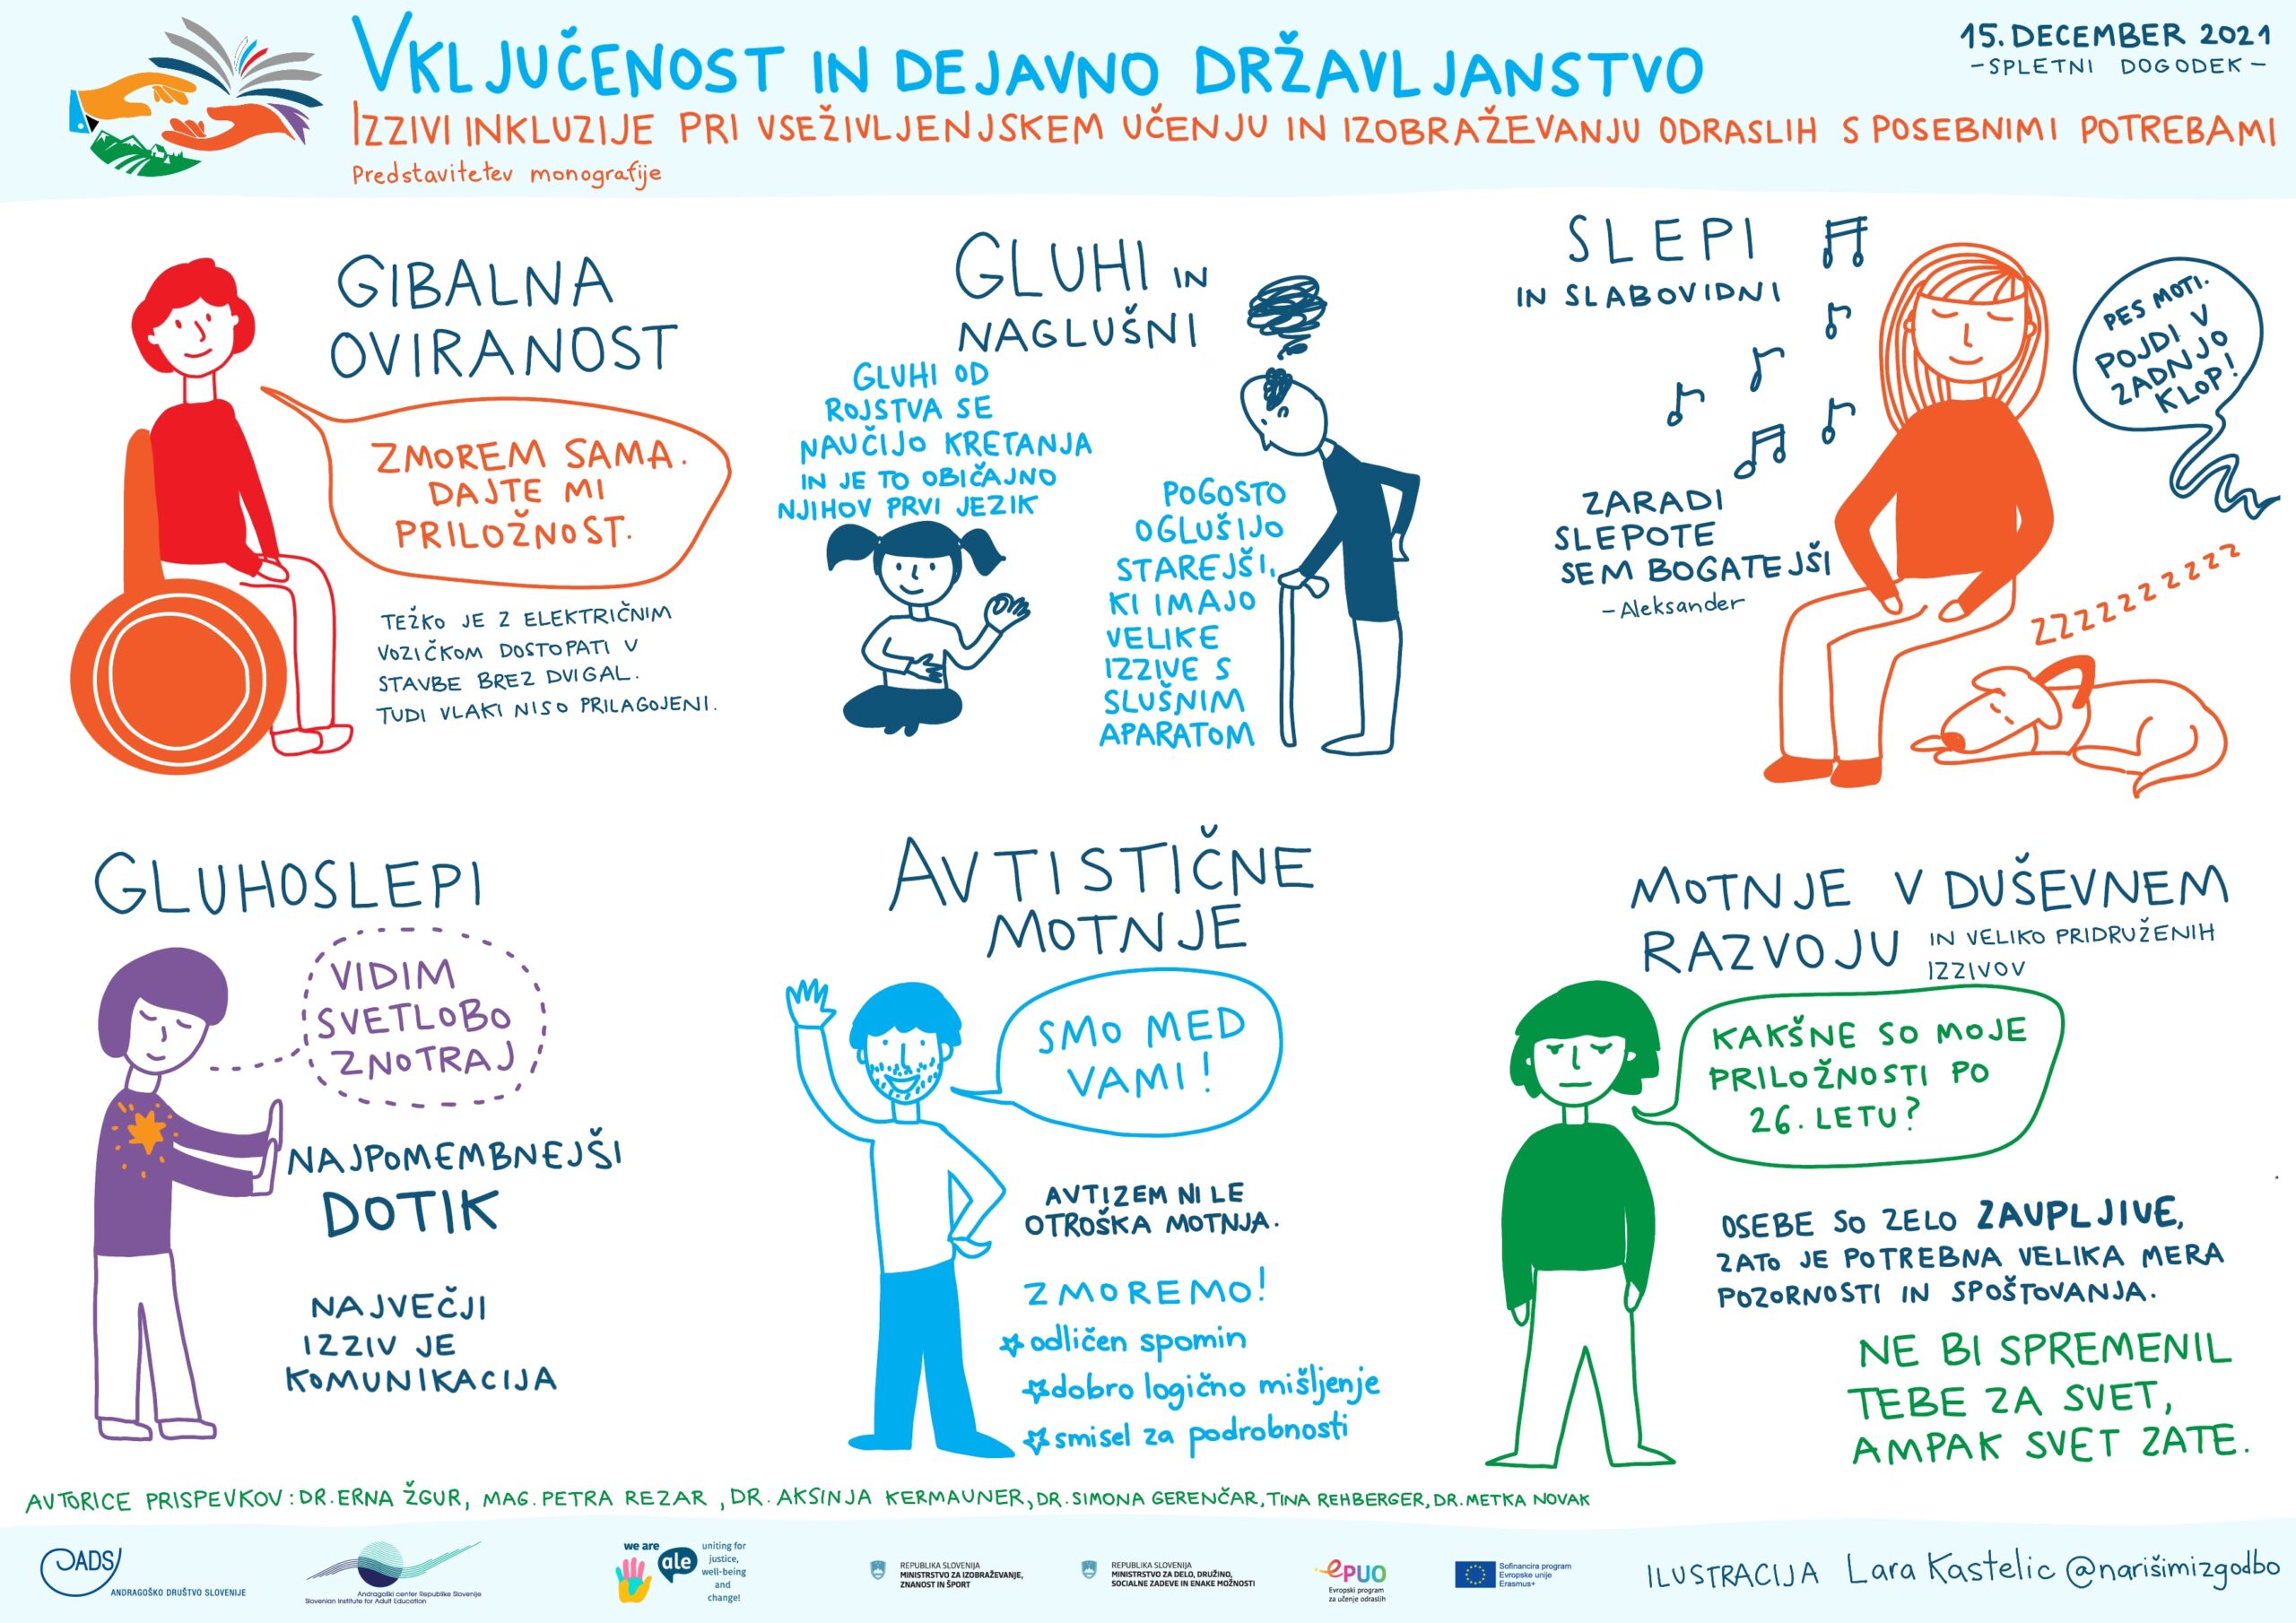 VKLJUČENOST IN DEJAVNO DRŽAVLJANSTVO
IZZIVI INKLUZIJE PRI VSEŽIVLJENJSKEM UČENJU IN IZOBRAŽEVANJU ODRASLIH S POSEBNIMI POTREBAMI
Predstavitetev monografije
15. DECEMBER 2021
- SPLETNI DOGODEK -
GIBALNA
OVIRANOST
ZMOREM SAMA.
DAJTE MI
PRILOŽNOST.
TEŽKO JE Z ELEKTRIČNIM
VOZIČKOM DOSTOPATI V
STAVBE BREZ DVIGAL.
TUDI VLAKI NISO PRILAGOJENI.
GLUHI IN
NAGLUŠNI
GLUHI OD
ROJSTVA SE
NAUČIJO KRETANJA
IN JE TO OBIČAJNO
NJIHOV PRVI JEZIK
POGOSTO
OGLUŠIJO
STAREJŠI,
KI IMAJO
VELIKE
IZZIVE S
SLUŠNIM
APARATOM
SLEPI
IN SLABOVIDNI
ZARADI
SLEPOTE
SEM BOGATEJŠI
- Aleksander
PES MOTI.
POJDI V
ZADNJO
KLOP!
ZZZZZZZZZZZ
GLUHOSLEPI
VIDIM
SVETLOBO
ZNOTRAJ
NAJPOMEMBNEJŠI
DOTIK
NAJVEČJI
IZZIV JE
KOMUNIKACIJA
AVTISTIČNE
MOTNJE
SMO MED
VAMI!
AVTIZEM NI LE
OTROŠKA MOTNJA.
ZMOREMO!
odličen spomin
dobro logično mišljenje
smisel za podrobnosti
MOTNJE V DUŠEVNEM
RAZVOJU IN VELIKO PRIDRUŽENIH
IZZIVOV
KAKŠNE SO MOJE
PRILOŽNOSTI PO
26. LETU?
OSEBE SO ZELO ZAUPLJIVE,
ZATO JE POTREBNA VELIKA MERA
POZORNOSTI IN SPOŠTOVANJA.
NE BI SPREMENIL
TEBE ZA SVET,
AMPAK SVET ZATE.
AVTORICE PRISPEVKOV: DR. ERNA ŽGUR, MAG. PETRA REZAR, DR. AKSINJA KERMAUNER, DR. SIMONA GERENČAR, TINA REHBERGER, DR. METKA NOVAK
ADS
ANDRAGOŠKO DRUŠTVO SLOVENIJE
Andragoški center Republike Slovenije
Slovenian Institute for Adult Education
we are
ale
uniting for
justice,
well-being
and
change!
REPUBLIKA SLOVENIJA
MINISTRSTVO ZA IZOBRAŽEVANJE,
ZNANOST IN ŠPORT
REPUBLIKA SLOVENIJA
MINISTRSTVO ZA DELO, DRUŽINO,
SOCIALNE ZADEVE IN ENAKE MOŽNOSTI
ePUO
Evropski program
za učenje odraslih
Sofinancira program
Evropske unije
Erasmus+
ILUSTRACIJA Lara Kastelic @narišimizgodbo